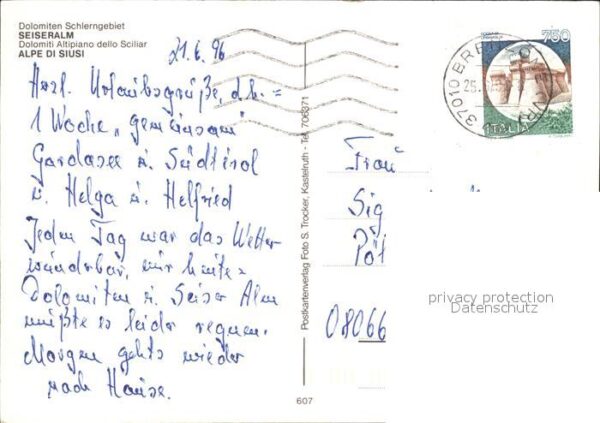 Dolomiten Schlerngebiet
SEISERALM
Dolomiti Altipiano dello Sciliar
ALPE DI SIUSI
21.6.96
Herzl. Urlaubsgrüße, d.h. =
1 Woche „gemeinsam"
Gardasee u. Südtirol
v. Helga u. Helfried
Jeden Tag war das Wetter
wunderbar, nur heute =
Dolomiten u. Seiser Alm
mußte es leider regnen.
Morgen gehts wieder
nach Hause.
Postkartenverlag Foto S. Trocker, Kastelruth - Tel. 706371
607
750
ITALIA
37010 BRE
Frau
Sig
Pöt
08066
privacy protection
Datenschutz